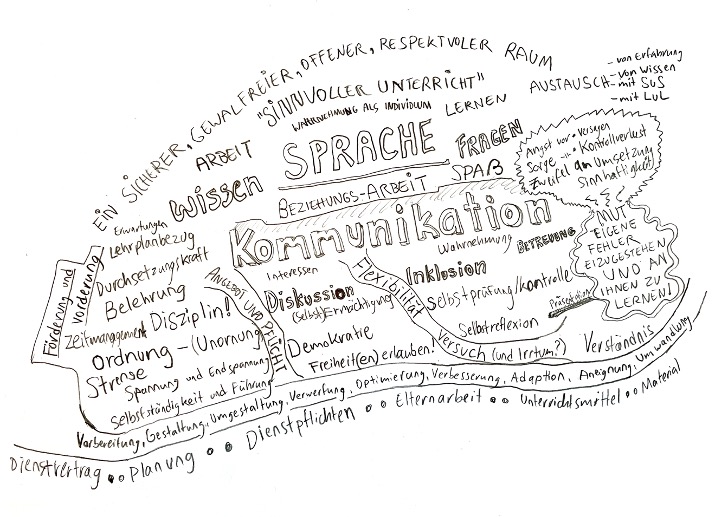 EIN SICHERER, GEWALFREIER, OFFENER, RESPEKTVOLER RAUM
"SINNVOLLER UNTERRICHT"
WAHRNEHMUNG ALS INDIVIDUUM
LERNEN
AUSTAUSCH
- von Erfahrung
- von Wissen
- mit SuS
- mit LuL
ARBEIT
SPRACHE
FRAGEN
SPAß
Wissen
BEZIEHUNGS-ARBEIT
Angst vor Versagen
Sorge -"- Kontrollverlust
Zweifel an Umsetzung
Sinnhaftigkeit!
Kommunikation
MUT
EIGENE
FEHLER
EIZUGESTEHEN
UND AN
IHNEN ZU
LERNEN!
Erwartungen
Lehrplanbezug
Förderung und
Vorderung
Durchsetzungskraft
Belehrung
Zeitmanagement
Disziplin!
Ordnung - (Unornung)
Strenge
Spannung und Endspannung
Selbstständigkeit und Führung
ANGEBOT UND PFLICHT
Interessen
Diskussion
(Selbst) Ermächtigung
Demokratie
Freiheit(en) erlauben!
Flexibilität
Wahrnehmung
BETREUUNG
Inklusion
Selbstprüfung/kontrolle
Präsentation
Selbstreflexion
Versuch (und Irrtum?)
Verständnis
Vorbereitung, Gestaltung, Umgestaltung, Verwerfung, Optimierung, Verbesserung, Adaption, Aneignung, Umwandlung
Dienstvertrag Planung Dienstpflichten Elternarbeit Unterrichtsmittel Material